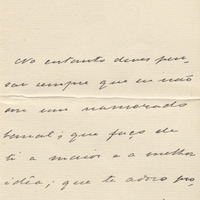 No entanto deves pen-
sar sempre que eu não
sou um namorado
banal; que faço de
ti a maior e a melhor
idêa; que te adoro pro